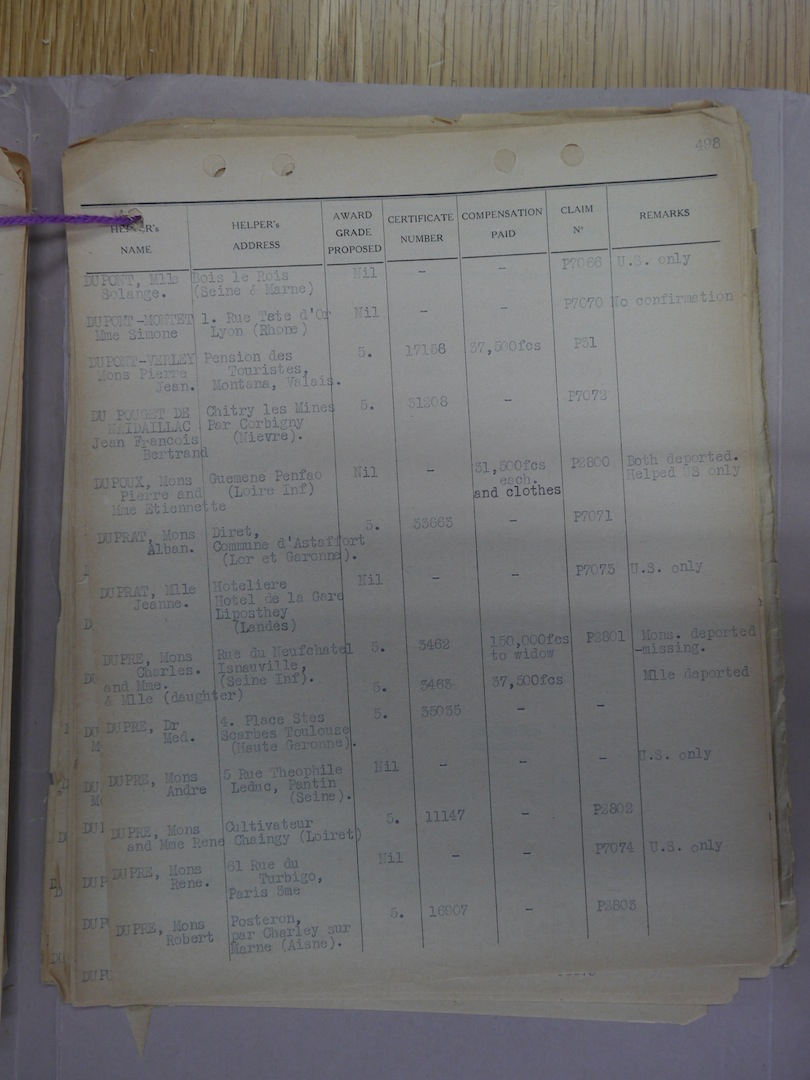 498
HELPER's NAME | HELPER's ADDRESS | AWARD GRADE PROPOSED | CERTIFICATE NUMBER | COMPENSATION PAID | CLAIM Nº | REMARKS
DUPONT, Mlle Bois le Rois Nil - - P7066 U.S. only
Solange. (Seine & Marne)
DUPONT-MONTET 1. Rue Tete d'Or Nil - - P7070 No confirmation
Mme Simone Lyon (Rhone)
DUPONT-VERLEY Pension des 5. 17158 37,500fcs P31
Mons Pierre Touristes,
Jean. Montana, Valais.
DU POUGET DE Chitry les Mines 5. 31208 - P7072
NAIDAILLAC Par Corbigny
Jean Francois (Nievre).
Bertrand
DUPOUX, Mons Guemene Penfao Nil - 31,500fcs P2800 Both deported.
Pierre and (Loire Inf) each. Helped US only
Mme Etiennette and clothes
DUPRAT, Mons Diret, 5. 33663 - P7071
Alban. Commune d'Astaffort
(Lor et Garonne).
DUPRAT, Mlle Hoteliere Nil - - P7073 U.S. only
Jeanne. Hotel de la Gare
Liposthey
(Landes)
DUPRE, Mons Rue du Neufchatel 5. 3462 150,000fcs P2801 Mons. deported
Charles. Isnauville, to widow -missing.
and Mme. (Seine Inf).
& Mlle (daughter) 5. 3463 37,500fcs Mlle deported
DUPRE, Dr 4. Place Stes 5. 35035 - -
Med. Scarbes Toulouse
(Haute Garonne).
DUPRE, Mons 5 Rue Theophile Nil - - - U.S. only
Andre Leduc, Pantin
(Seine).
DUPRE, Mons Cultivateur 5. 11147 - P2802
and Mme Rene Chaingy (Loiret)
DUPRE, Mons 61 Rue du Nil - - P7074 U.S. only
Rene. Turbigo,
Paris 3me
DUPRE, Mons Posteron, 5. 16907 - P2803
Robert par Charley sur
Marne (Aisne).